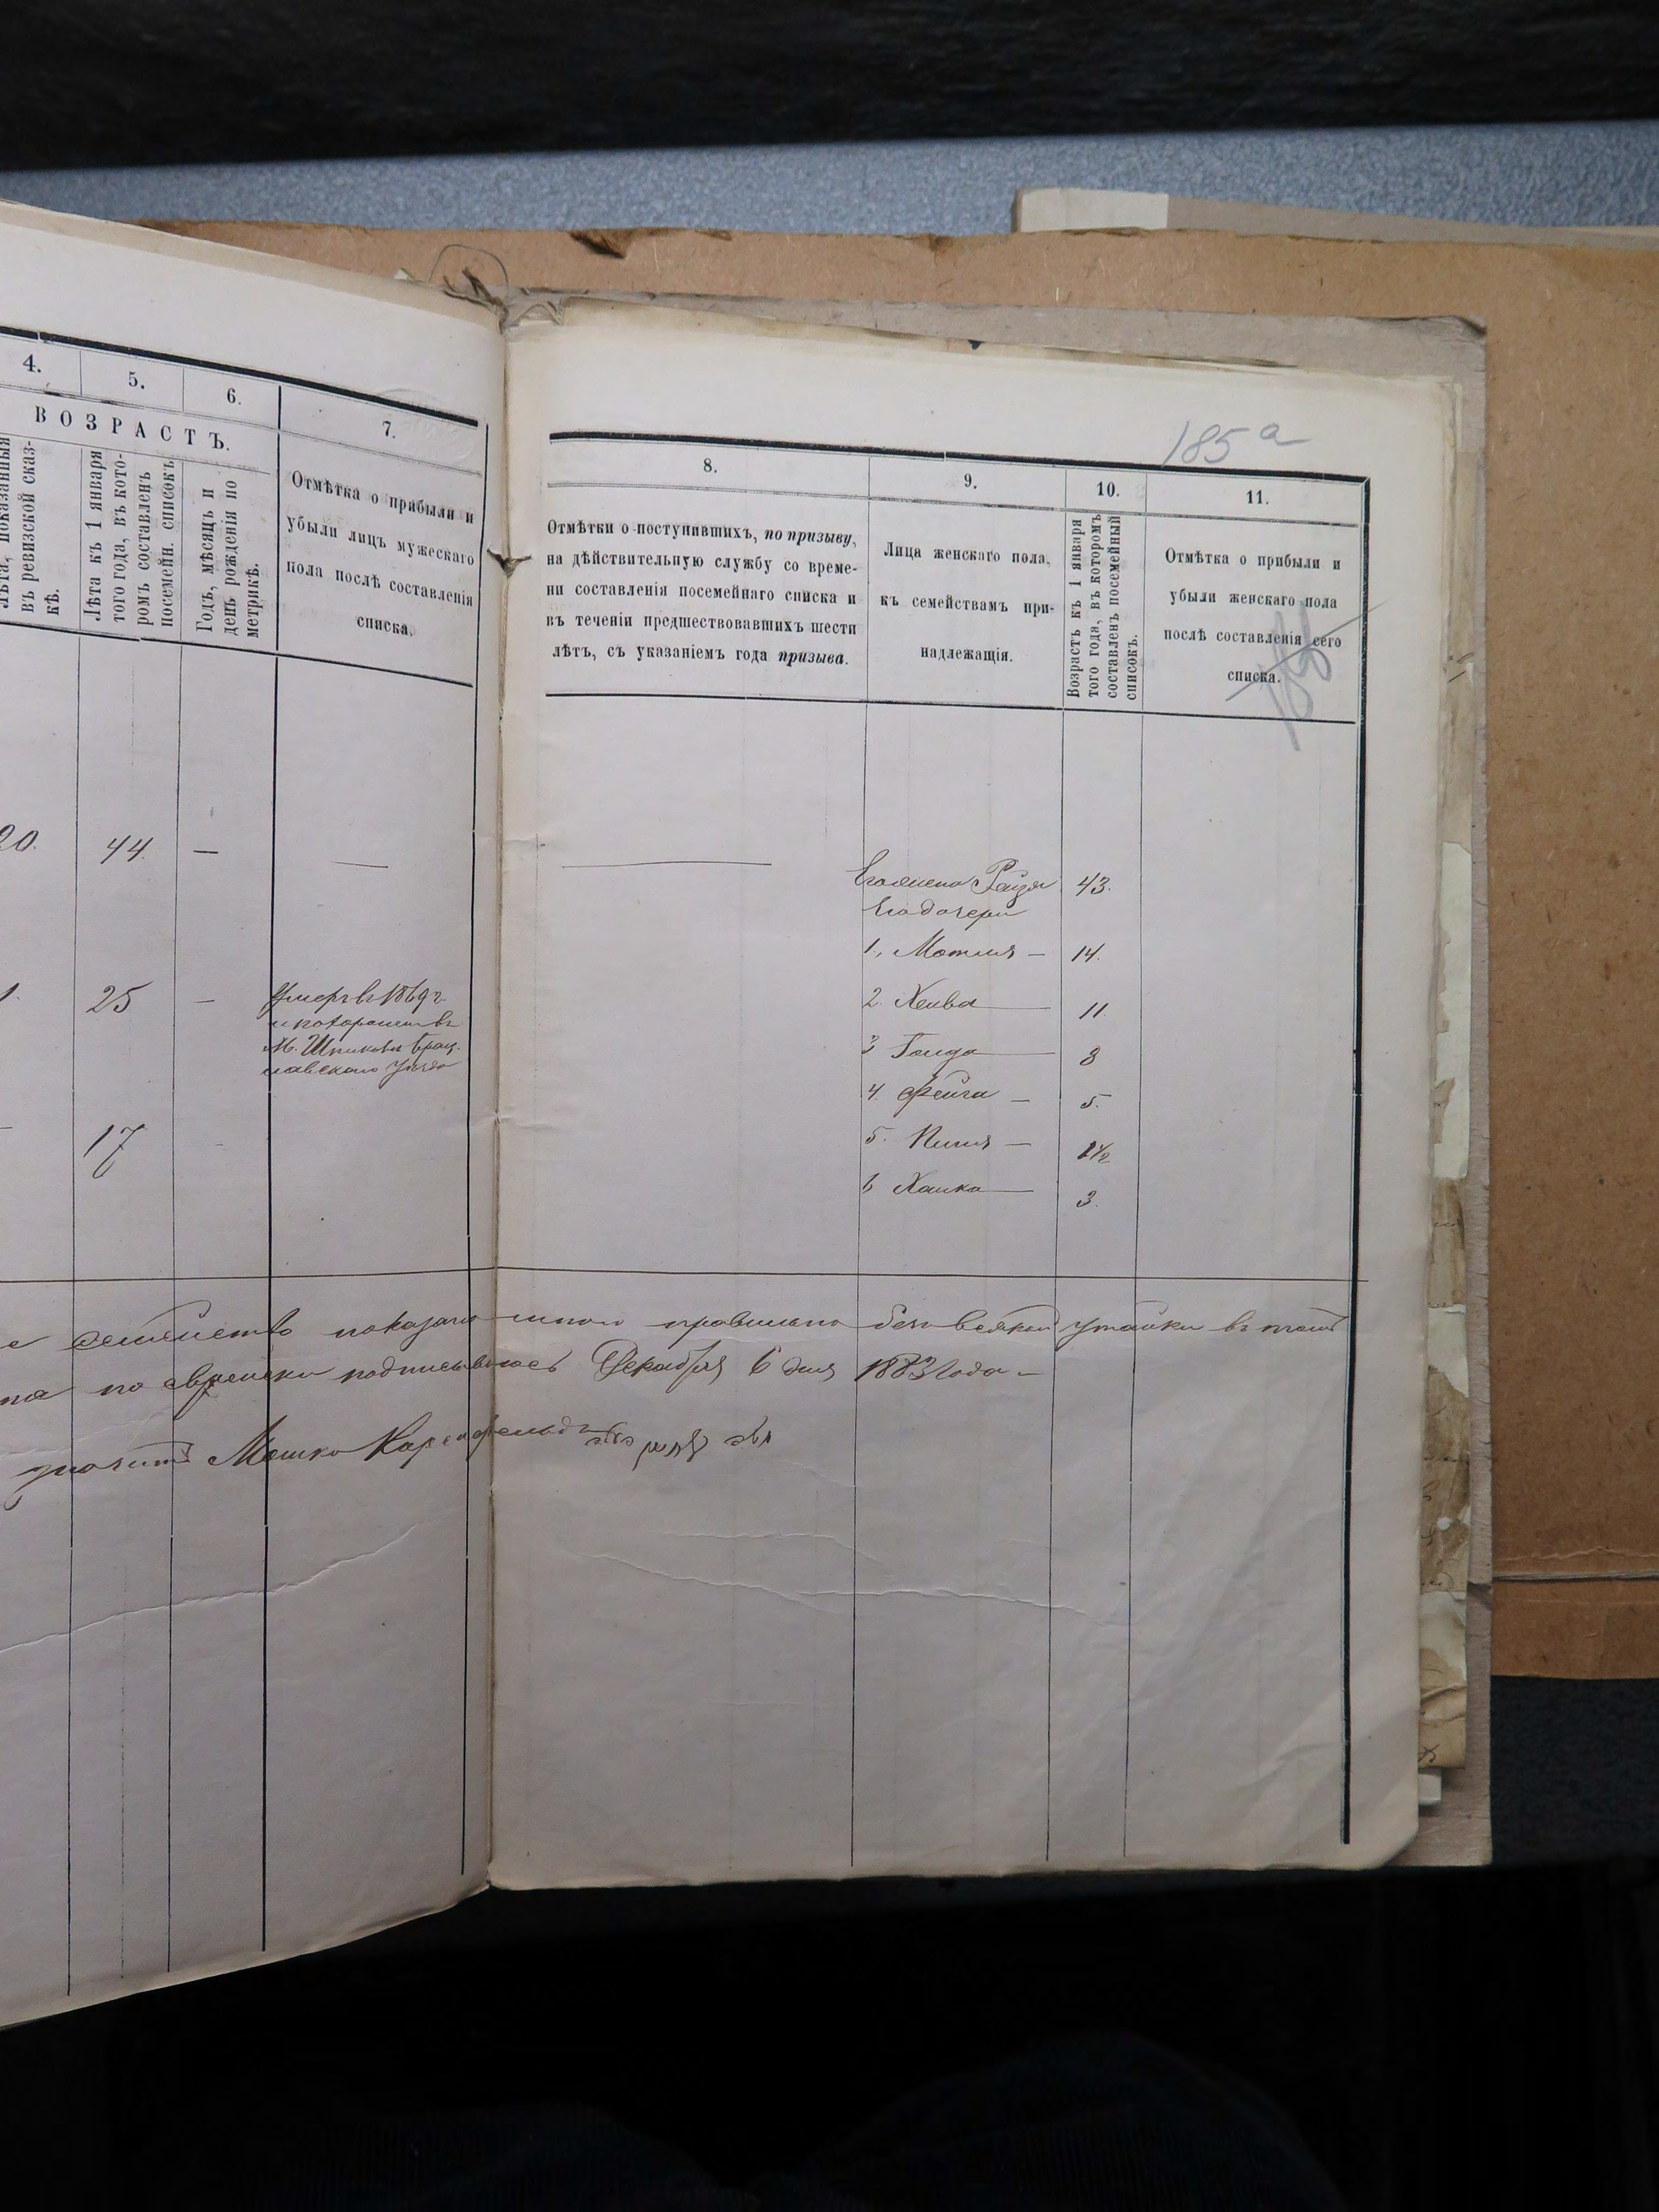 4.
5.
6.
7.
ВОЗРАСТЪ.
Лѣта, показанныя
въ ревизской сказ-
кѣ.
Лѣта къ 1 января
того года, въ кото-
ромъ составленъ
посемейн. списокъ
Годъ, мѣсяцъ и
день рожденія по
метрикѣ.
Отмѣтка о прибыли и
убыли лицъ мужескаго
пола послѣ составленія
списка.
20.
44.
—
—
1.
25
—
Умеръ въ 1869 г.
и похороненъ въ
М. Шпиковѣ Брац-
лавскаго уѣзда
17
185 а
8.
9.
10.
11.
Отмѣтки о поступившихъ, по призыву,
на дѣйствительную службу со време-
ни составленія посемейнаго списка и
въ теченіи предшествовавшихъ шести
лѣтъ, съ указаніемъ года призыва.
Лица женскаго пола,
къ семействамъ при-
надлежащія.
Возрастъ къ 1 января
того года, въ которомъ
составленъ посемейный
списокъ.
Отмѣтка о прибыли и
убыли женскаго пола
послѣ составленія сего
списка.
Его жена Рейзя 43.
Его дочери
1., Мотля — 14.
2. Хейва — 11.
3 Голда — 8
4. Фейга — 5.
5. Пиня — 1½
6 Хайка — 3.
семейство показано мною правильно безъ всякой утайки въ томъ
по еврейски подписываюсь Декабря 6 дня 1883 года —
значитъ Мошко